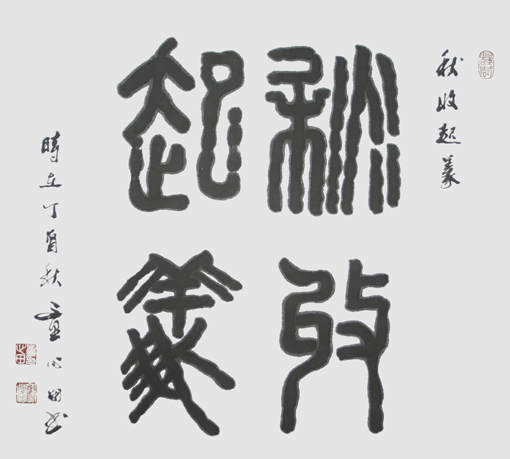 秋收
起義
秋收起義
時在丁酉秋董心田书